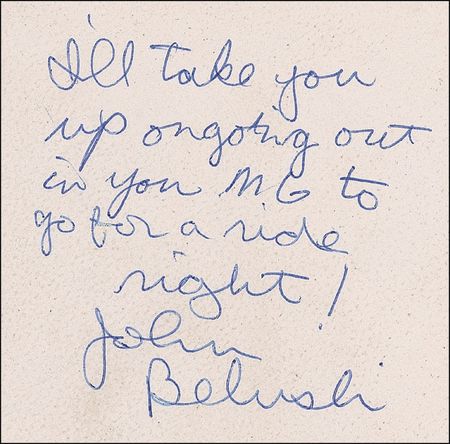 I'll take you
up on going out
in you MG to
go for a ride
right!
John
Belushi